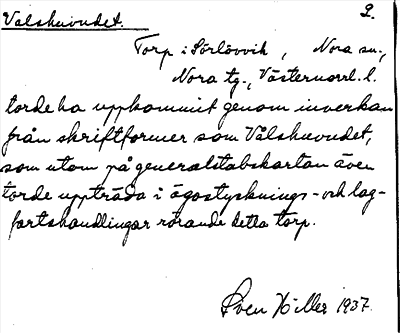 Valshuvudet. 2.
Torp i Sörlövvik, Nora sn.,
Nora tg., Västernorrl. l.
torde ha uppkommit genom inverkan
från skriftformer som Vålshuvudet,
som utom på generalstabskartan även
torde uppträda i ägostycknings- och lag-
fartshandlingar rörande detta torp.
Sven Hiller 1937.